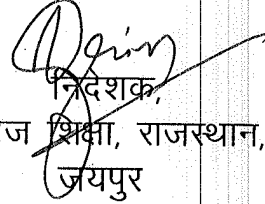 निदेशक,
ज शिक्षा, राजस्थान,
जयपुर